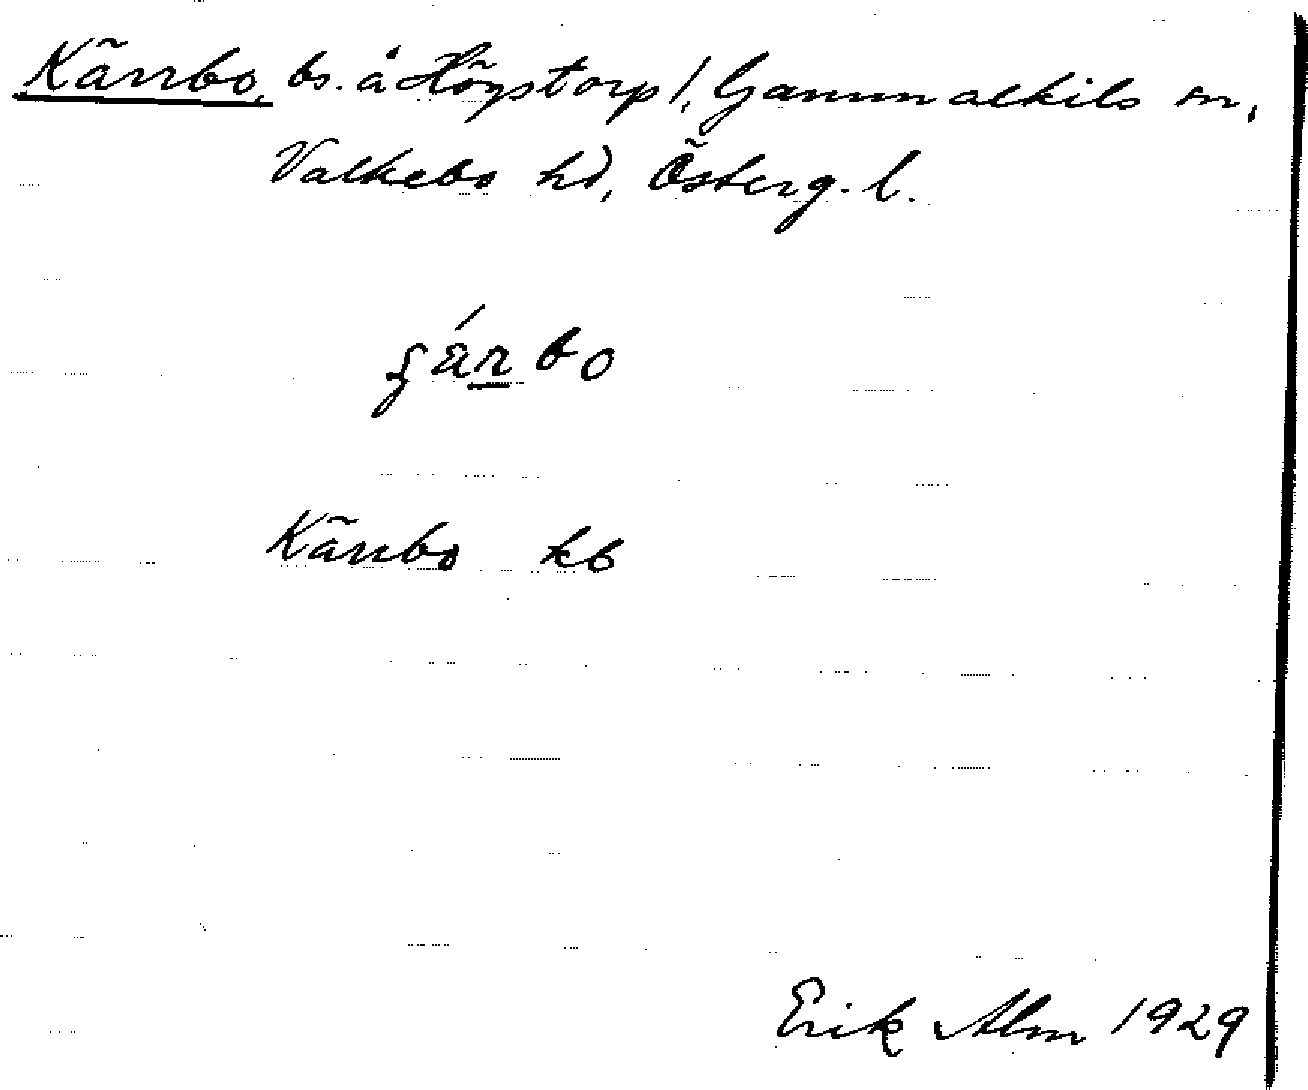 Kärrbo, bs. å Högstorp 1, Gammalkils sn,
Valkebo hd, Österg. l.
Kärrbo kb
Erik Alm 1929